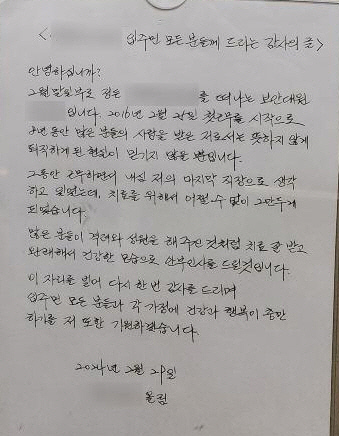 < 입주민 모든 분들께 드리는 감사의 글>
안녕하십니까?
2월 말일부로 정든 를 떠나는 보안대원
입니다. 2016년 2월 첫근무를 시작으로
8년 동안 많은 분들의 사랑을 받은 저로서는 뜻하지 않게
퇴직하게 된 현실이 믿기지 않을 뿐입니다.
그동안 근무하면서 내심 저의 마지막 직장으로 생각
하고 있었는데, 치료를 위해서 어쩔 수 없이 그만두게
되었습니다.
많은 분들이 격려와 성원을 해주신 것처럼 치료 잘 받고
완쾌해서 건강한 모습으로 안부인사를 드릴것입니다.
이 자리를 빌어 다시 한 번 감사를 드리며
입주민 모든 분들과 각 가정에 건강과 행복이 충만
하기를 저 또한 기원하겠습니다.
2024년 2월 29일
올림